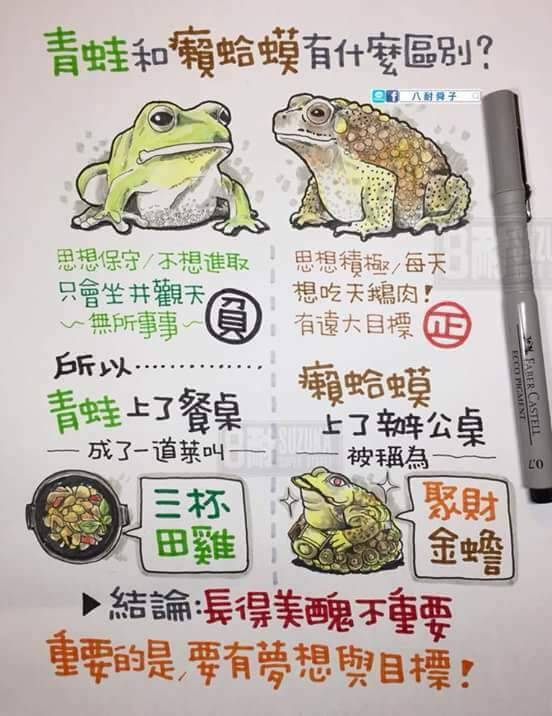 青蛙和癩蛤蟆有什麼區別?
八耐舜子
思想保守/不想進取
只會坐井觀天
～無所事事～
負
思想積極/每天
想吃天鵝肉!
有遠大目標
正
所以············
青蛙上了餐桌
成了一道菜叫
三杯
田雞
癩蛤蟆
上了辦公桌
被稱為
聚財
金蟾
▶結論:長得美醜不重要
重要的是,要有夢想與目標!
FABER CASTELL
ECCO PIGMENT
0.7